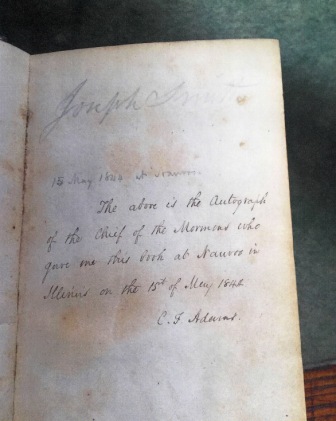 Joseph Smith
15 May 1844 At Nauvoo.
The above is the Autograph
of the Chief of the Mormons who
gave me this book at Nauvoo in
Illinois on the 15th of May 1844.
C. F. Adams.